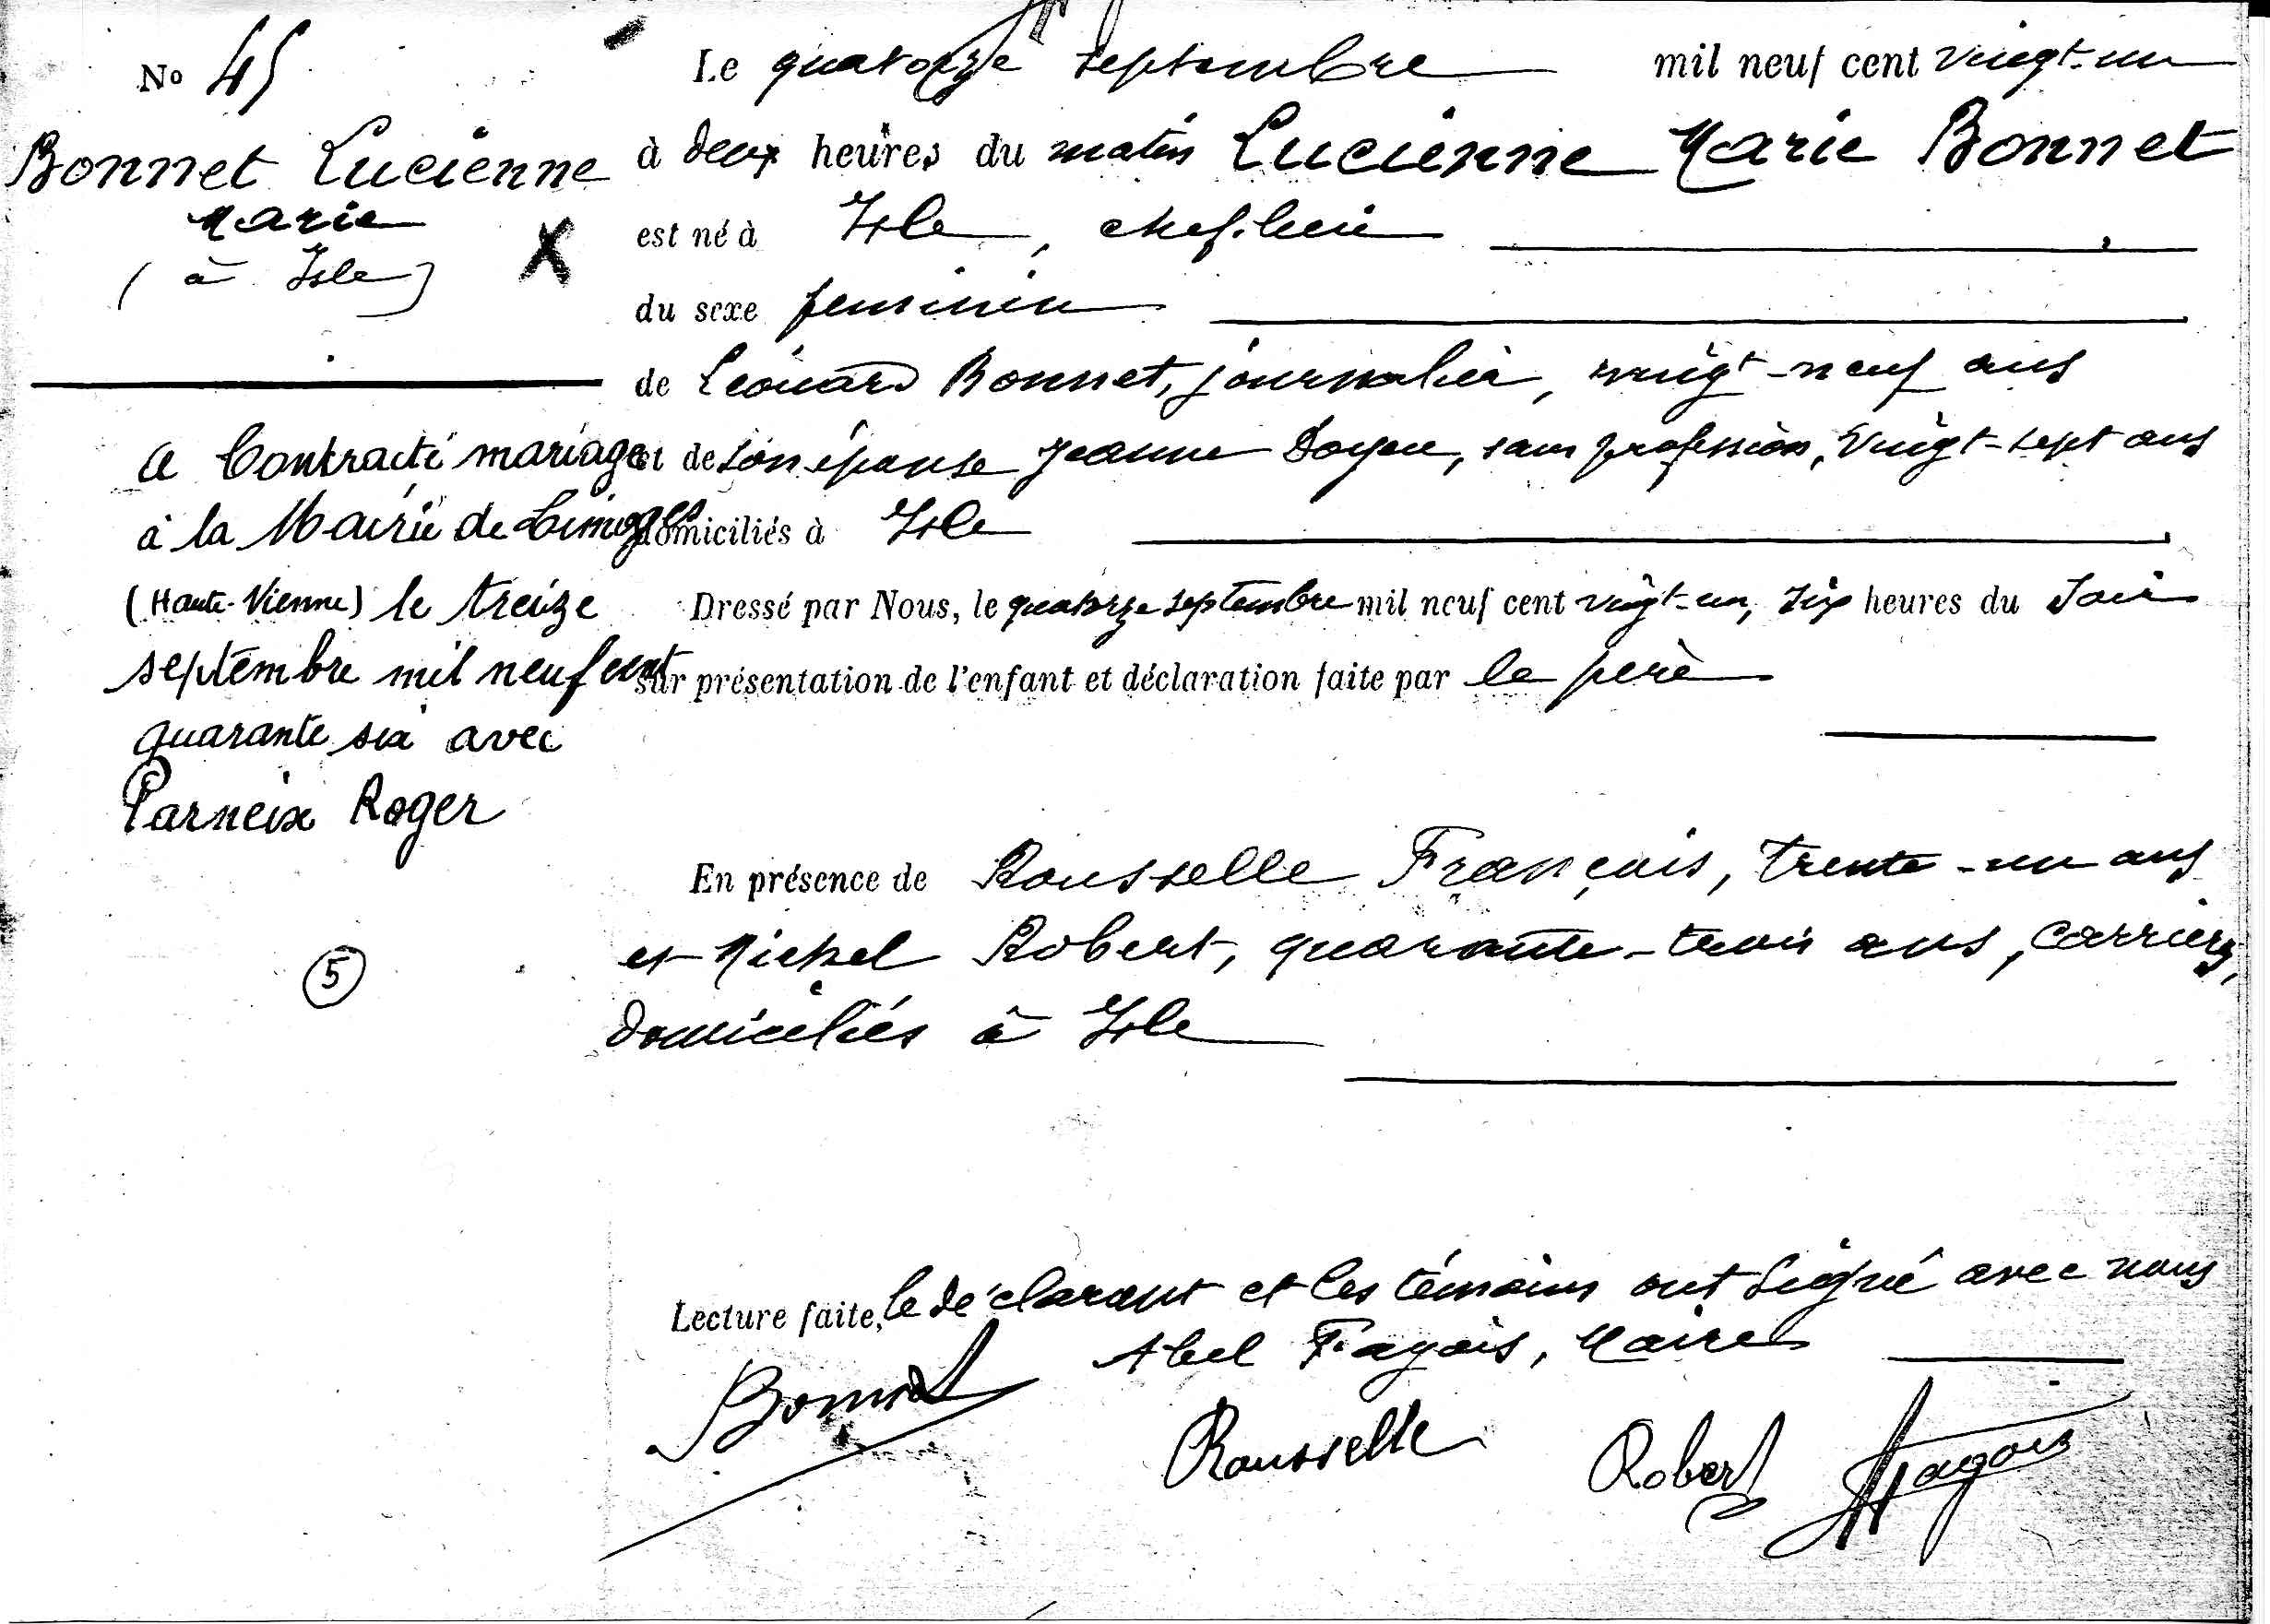 No 45
Bonnet Lucienne
Marie
( à Isle )
a Contracté mariage
à la Mairie de Limoges
(Haute-Vienne) le treize
septembre mil neuf cent
quarante six avec
Parneix Roger
5
Le quatorze septembre mil neuf cent vingt-un
à deux heures du matin Lucienne Marie Bonnet
est né à Isle, chef-lieu
du sexe feminin
de Léonard Bonnet, journalier, vingt-neuf ans
et de son épouse Jeanne Doyen, sans profession, vingt-sept ans
domiciliés à Isle
Dressé par Nous, le quatorze septembre mil neuf cent vingt-un, six heures du soir
sur présentation de l'enfant et déclaration faite par le père
En présence de Rousselle François, trente-un ans
et Michel Robert, quarante-trois ans, carriers,
domiciliés à Isle
Lecture faite, le déclarant et les témoins ont signé avec nous
Abel Fagois, Maire
Bonnet
Rousselle
Robert
Fagois